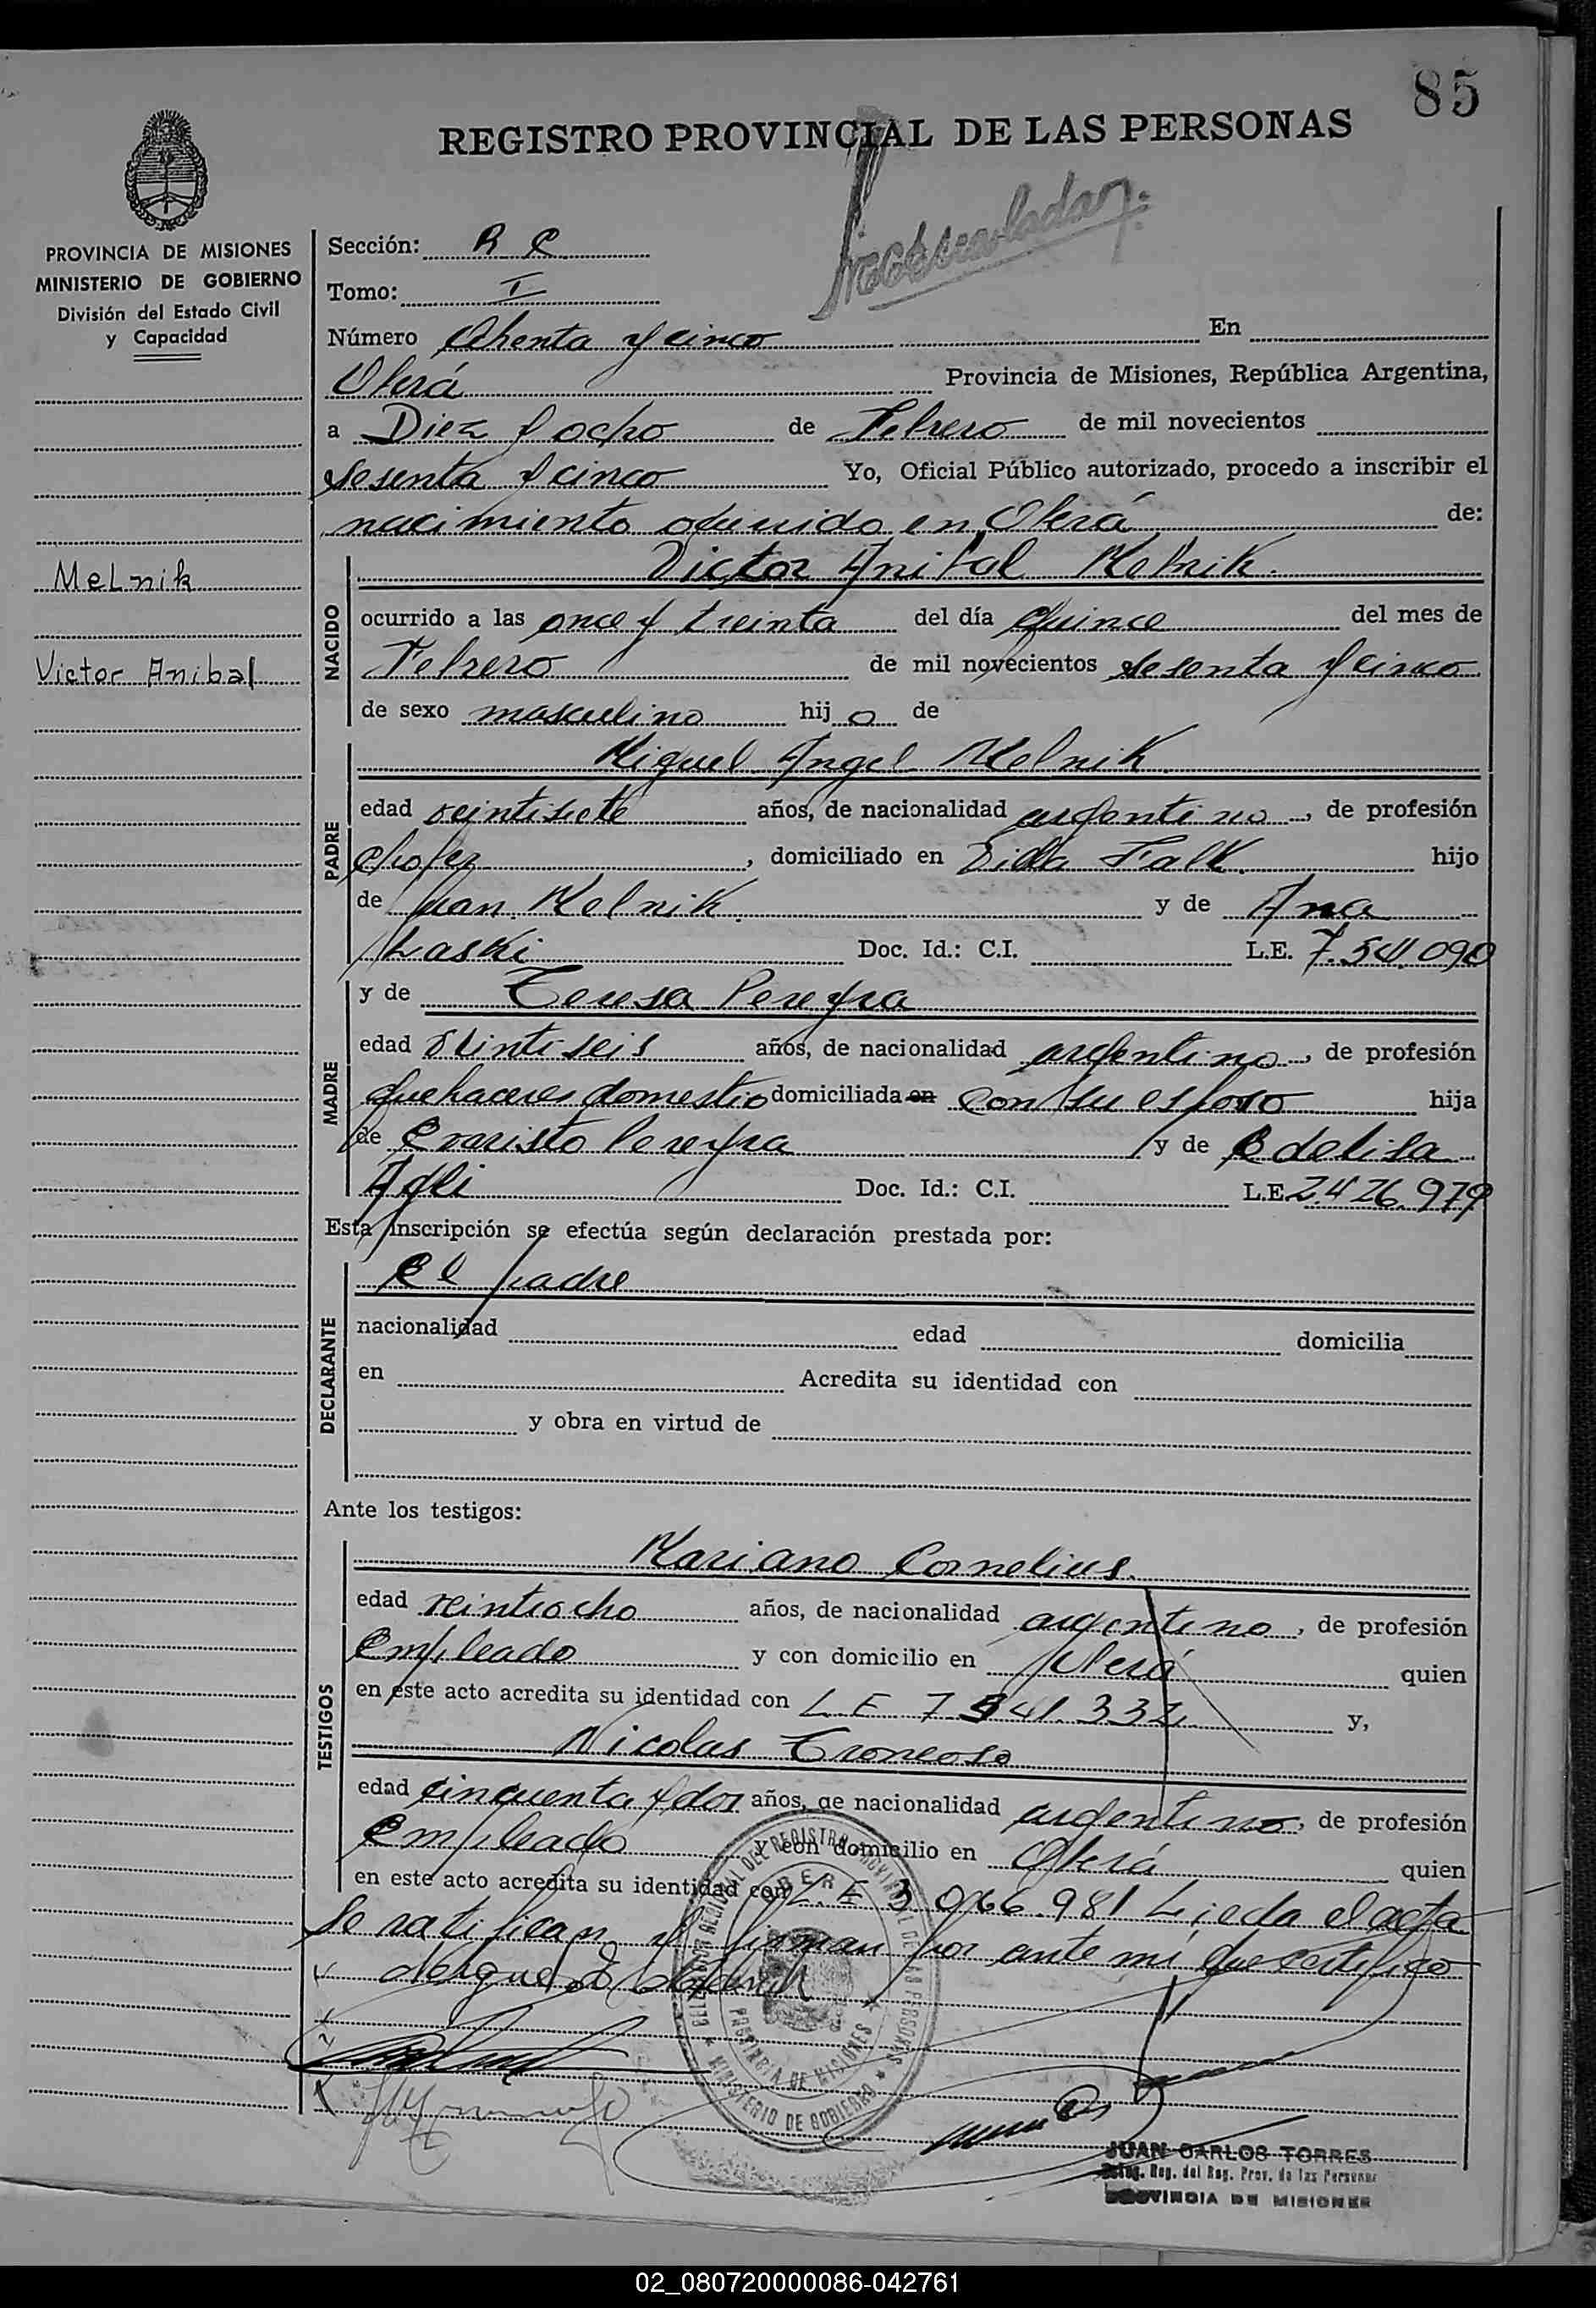 85
REGISTRO PROVINCIAL DE LAS PERSONAS
PROVINCIA DE MISIONES
MINISTERIO DE GOBIERNO
División del Estado Civil
y Capacidad
Melnik
Victor Anibal
Sección: R C
Tomo: I
Número Ochenta y cinco En
Oberá Provincia de Misiones, República Argentina,
a Diez y ocho de Febrero de mil novecientos
sesenta y cinco Yo, Oficial Público autorizado, procedo a inscribir el
nacimiento ocurrido en Oberá de:
NACIDO
Victor Anibal Melnik.
ocurrido a las once y treinta del día quince del mes de
Febrero de mil novecientos sesenta y cinco
de sexo masculino hijo de
PADRE
Miguel Angel Melnik
edad veintisiete años, de nacionalidad argentino, de profesión
chofer, domiciliado en Villa Falk. hijo
de Juan Melnik. y de Ana
Laski Doc. Id.: C.I. L.E. 7.541.090
MADRE
y de Teresa Pereyra
edad veintiseis años, de nacionalidad argentino, de profesión
quehaceres domestico domiciliada en con su esposo hija
de Evaristo Pereyra y de Edelisa
Doc. Id.: C.I. L.E. 2.426.979
Esta inscripción se efectúa según declaración prestada por:
DECLARANTE
El padre
nacionalidad edad domicilia
en Acredita su identidad con
y obra en virtud de
Ante los testigos:
TESTIGOS
Mariano Cornelius.
edad veintiocho años, de nacionalidad argentino, de profesión
Empleado y con domicilio en Oberá quien
en este acto acredita su identidad con L.E 7.541.332 y,
Nicolas Troncoso
edad cincuenta y dos años, de nacionalidad argentino, de profesión
Empleado y con domicilio en Oberá quien
en este acto acredita su identidad con L.E 3.066.981 Leída el acta
se ratifican y firman por ante mí que certifico
REGISTRO PROVINCIAL DE LAS PERSONAS
PROVINCIA DE MISIONES
MINISTERIO DE GOBIERNO
JUAN CARLOS TORRES
Deleg. Reg. del Reg. Prov. de las Personas
PROVINCIA DE MISIONES
02_080720000086-042761